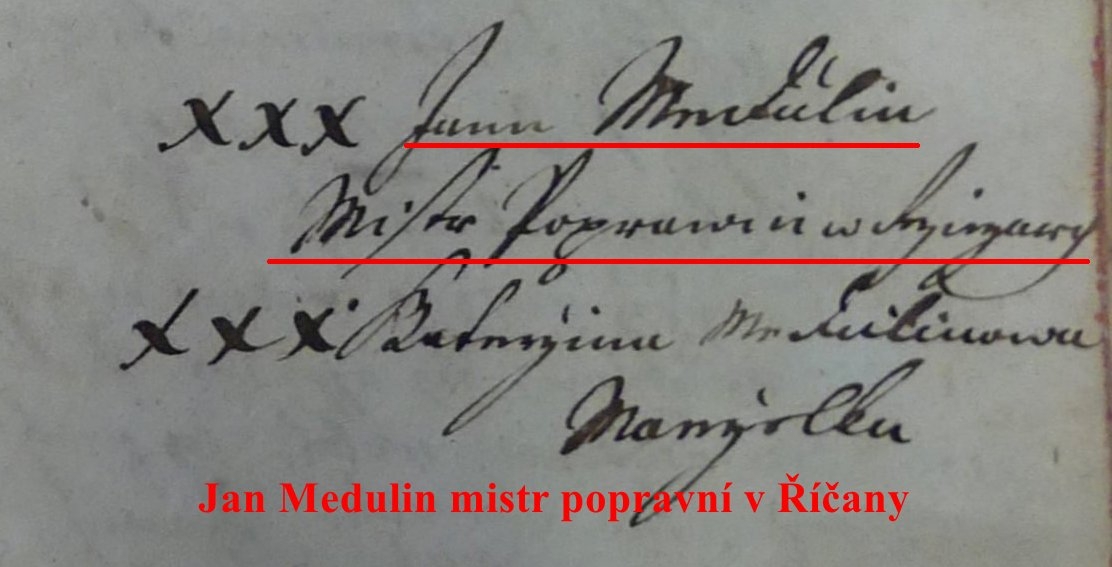 xxx Jann Medulin
Mistr Poprawni w Rziczanech
xxx Kateržina Medulinowa
Manželka
Jan Medulin mistr popravní v Říčany